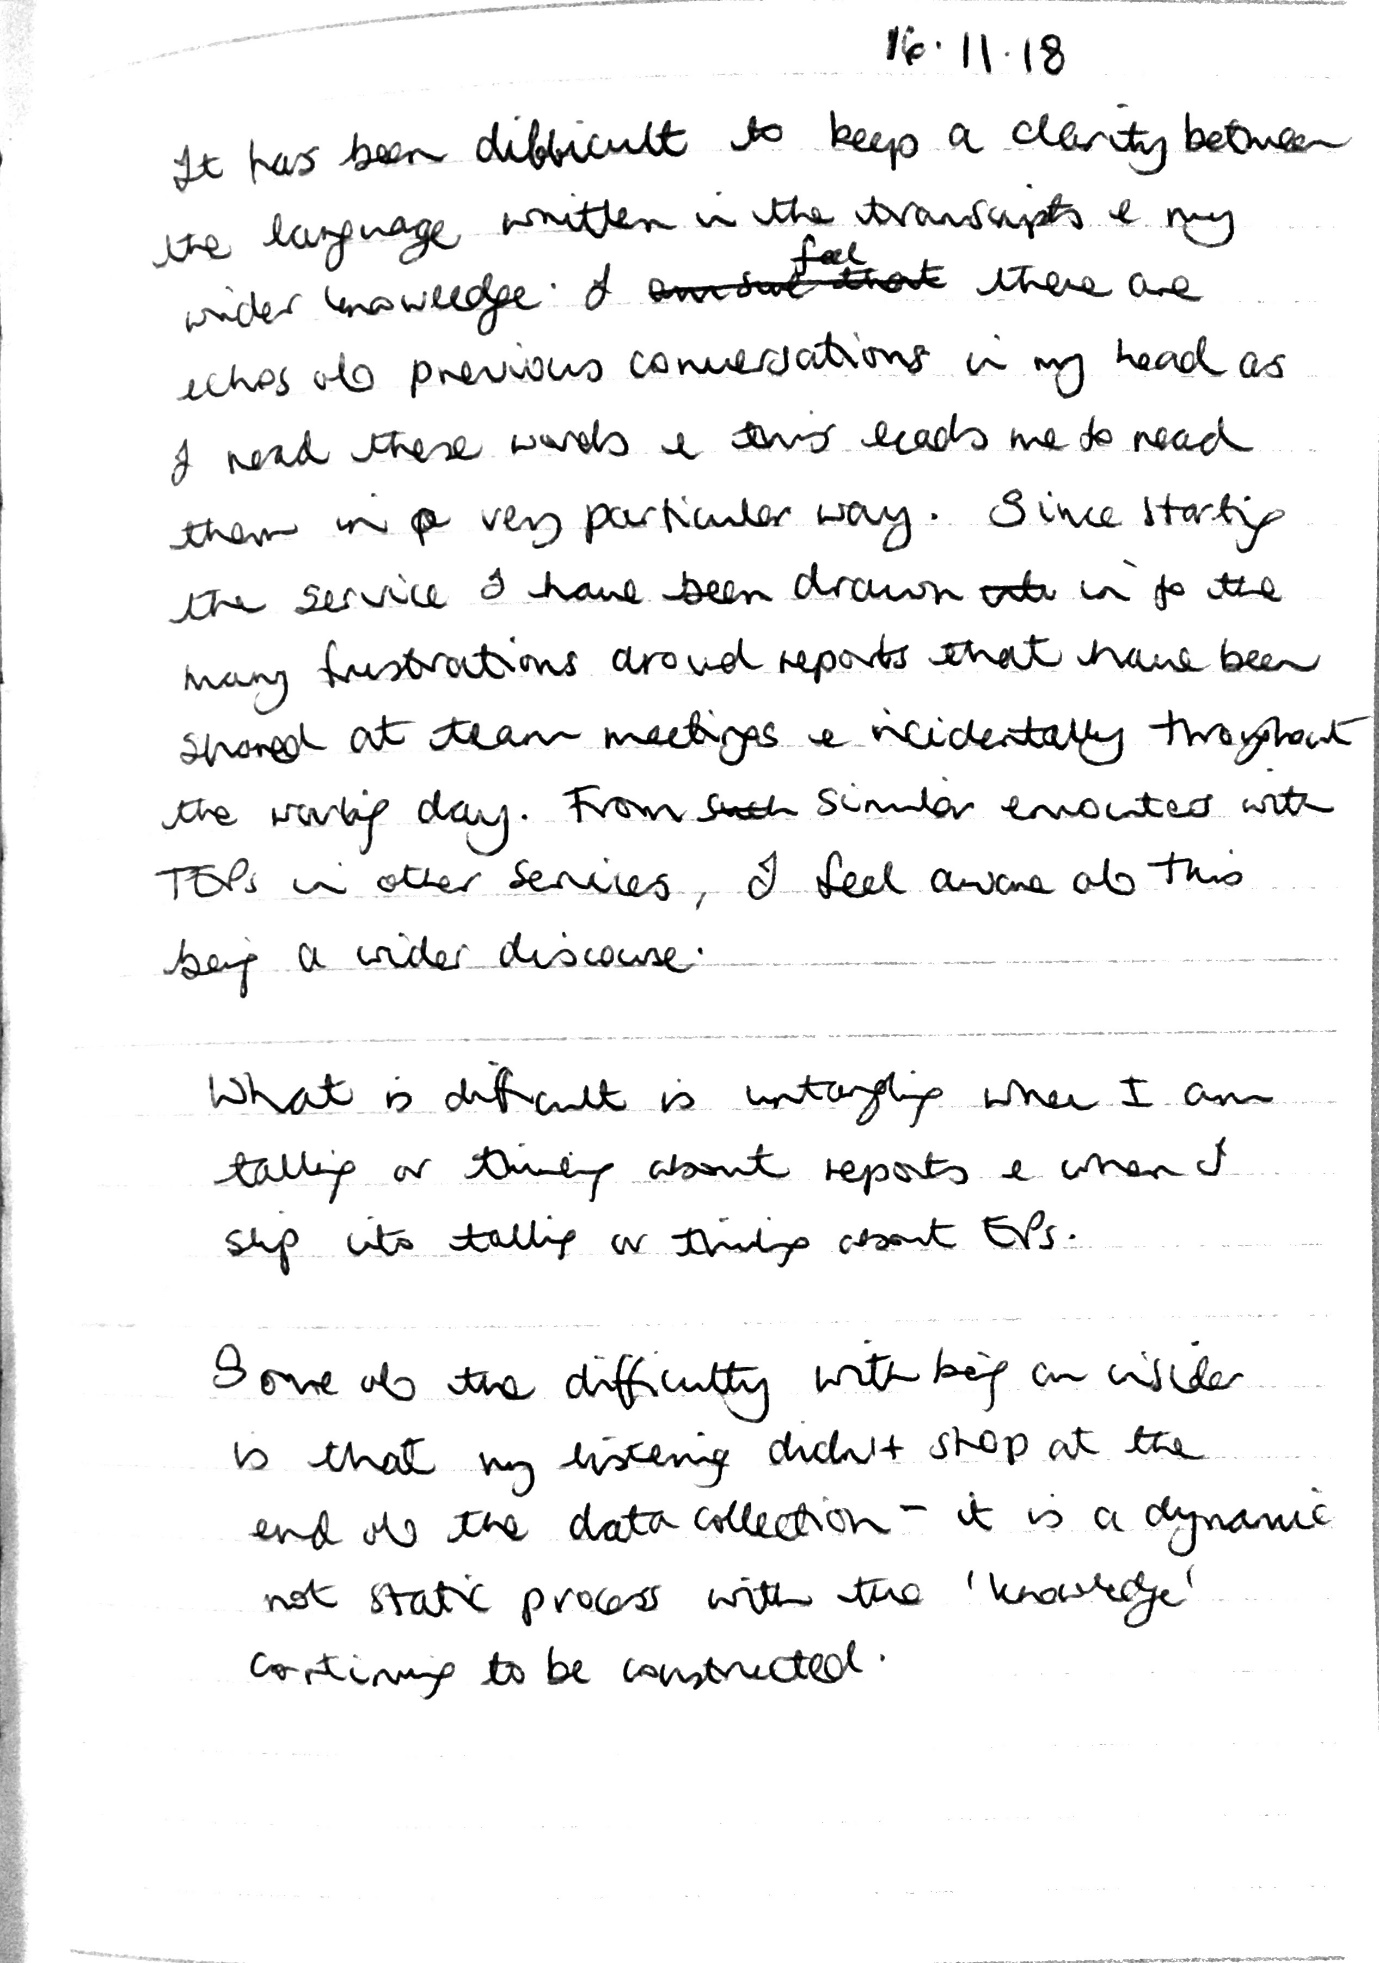 16.11.18
It has been difficult to keep a clarity between
the language written in the transcripts & my
wider knowledge. I am sure that feel there are
echos of previous conversations in my head as
I read these words & this leads me to read
them in a very particular way. Since starting
the service I have been drawn in to the
many frustrations around reports that have been
shared at team meetings & incidentally throughout
the working day. From such similar encounters with
TEPs in other services, I feel aware of this
being a wider discourse.
What is difficult is untangling when I am
talking or thinking about reports & when I
slip into talking or thinking about EPs.
Some of the difficulty with being an insider
is that my listening didn't stop at the
end of the data collection - it is a dynamic
not static process with the 'knowledge'
continuing to be constructed.